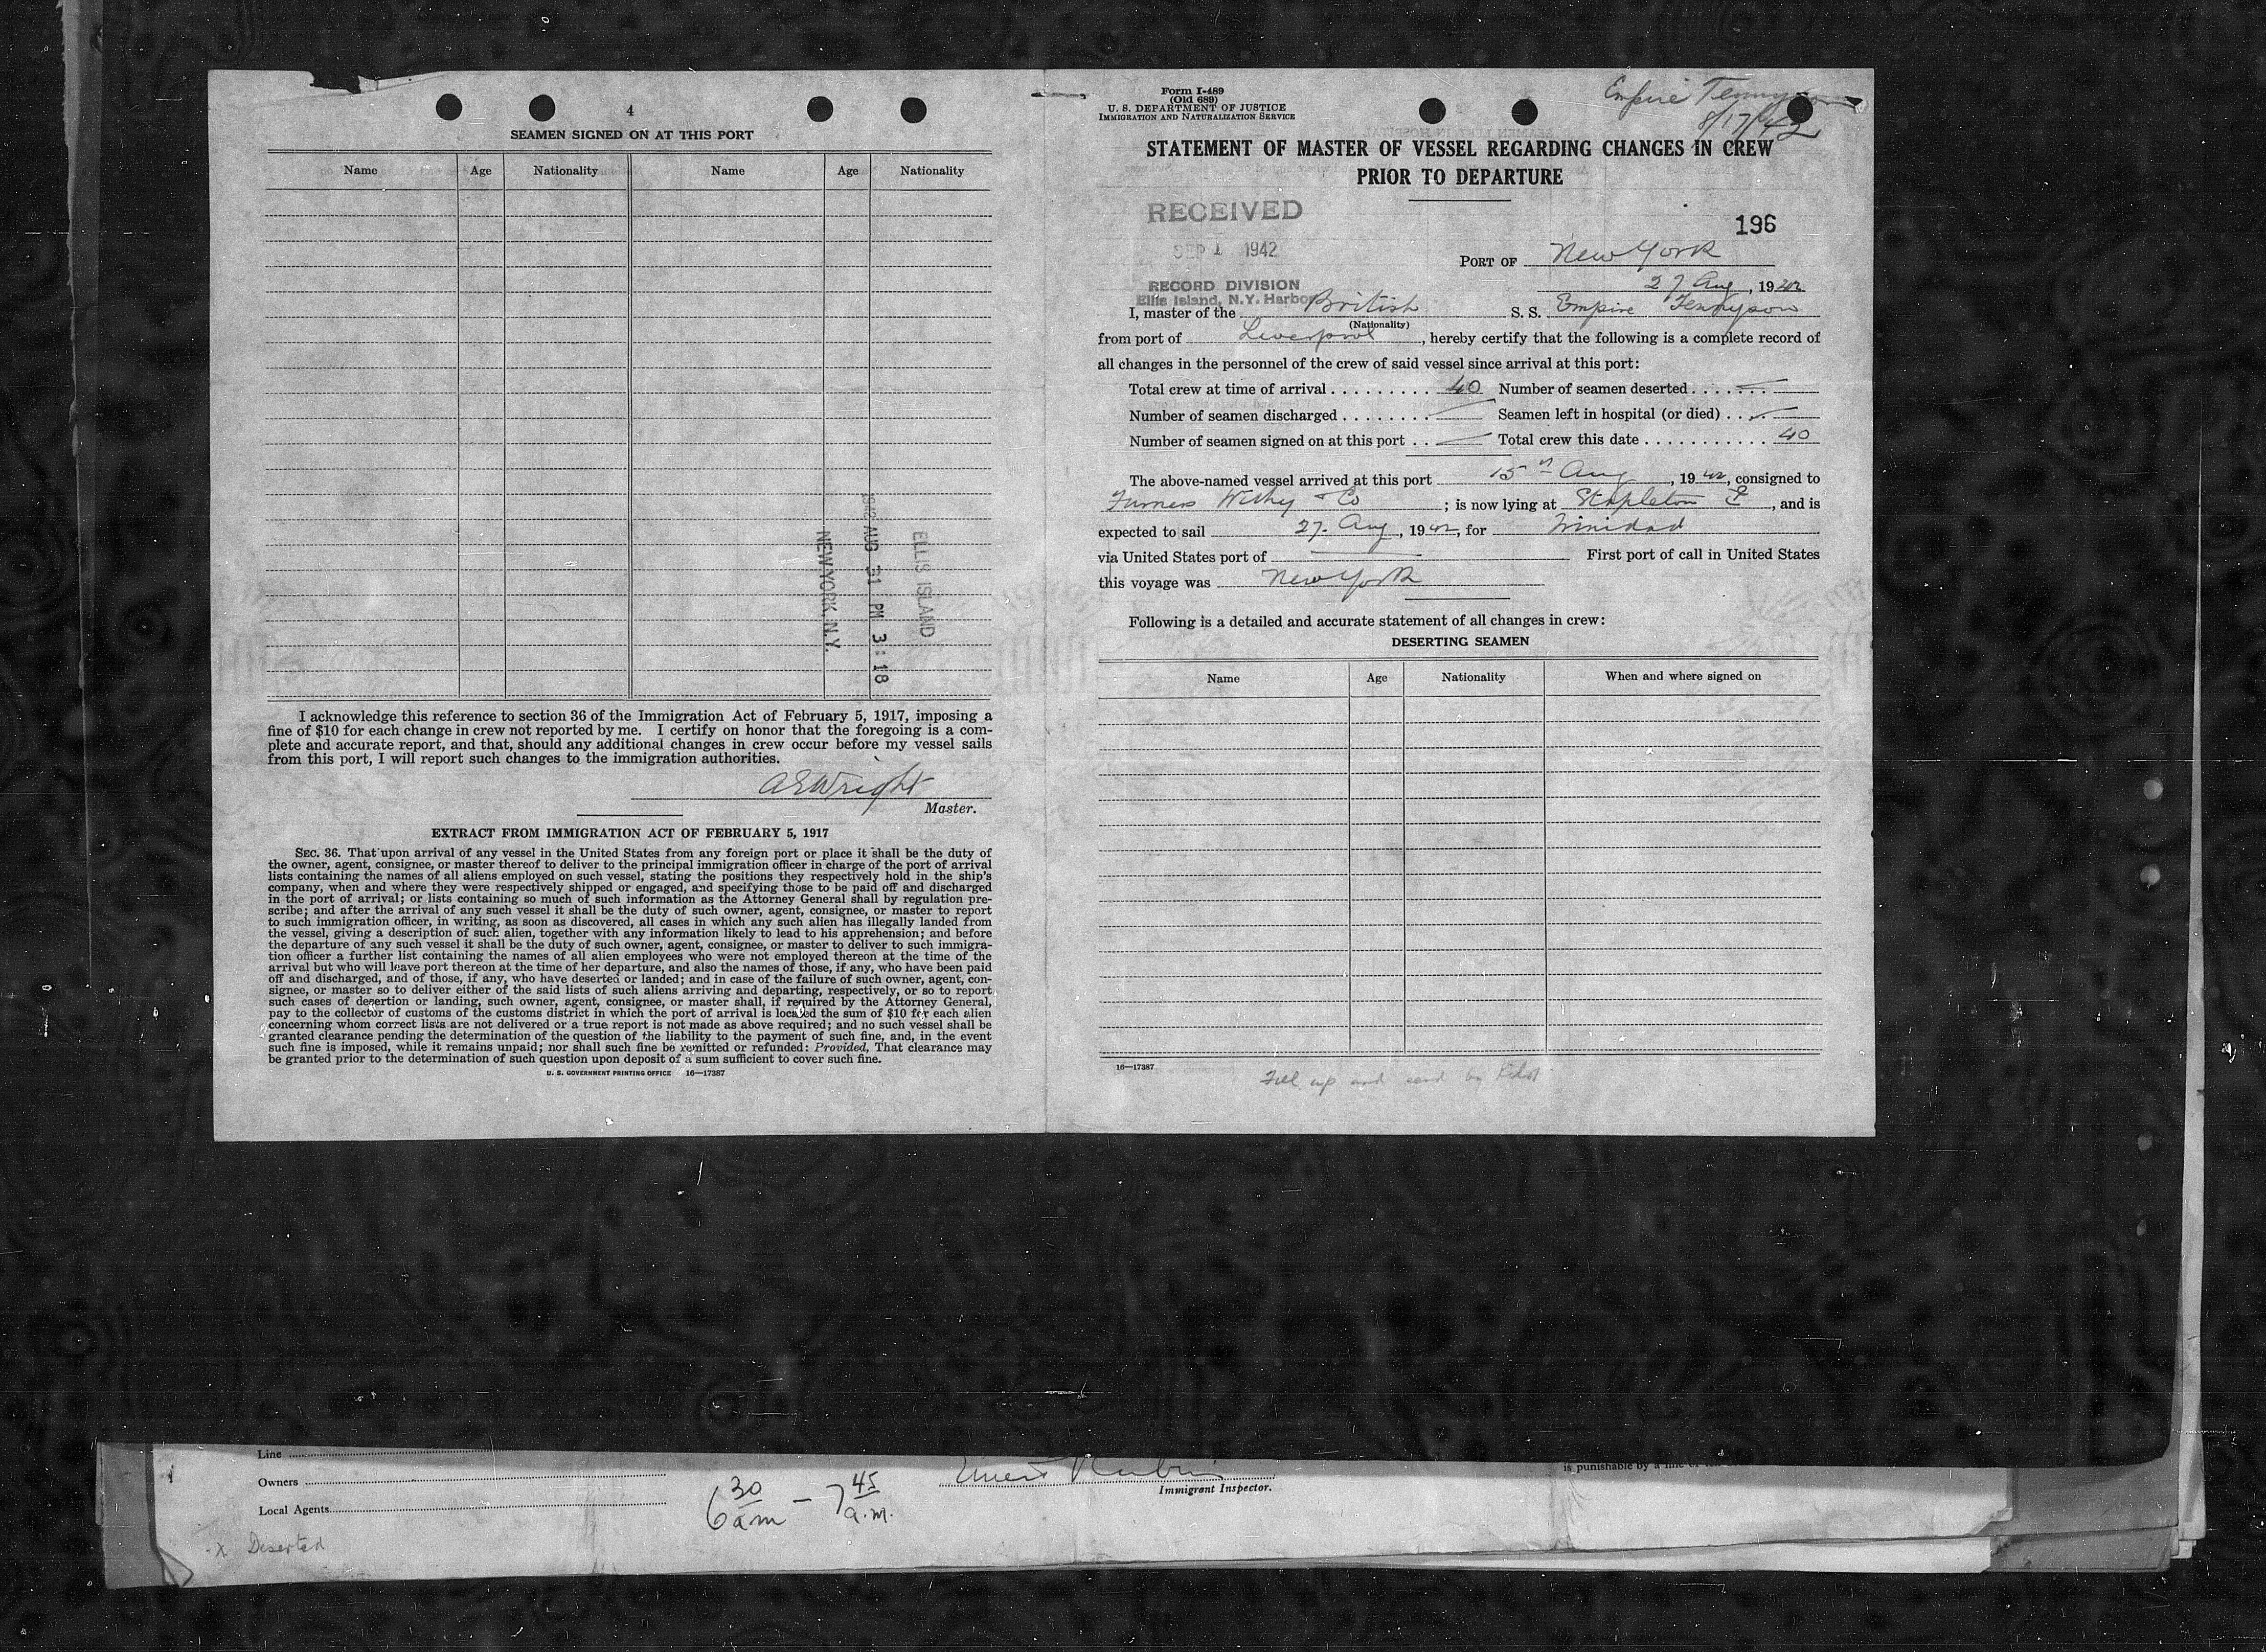 4
SEAMEN SIGNED ON AT THIS PORT
Name Age Nationality Name Age Nationality
ELLIS ISLAND
1942 AUG 31 PM 3:18
NEW YORK, N.Y.
I acknowledge this reference to section 36 of the Immigration Act of February 5, 1917, imposing a
fine of $10 for each change in crew not reported by me. I certify on honor that the foregoing is a com-
plete and accurate report, and that, should any additional changes in crew occur before my vessel sails
from this port, I will report such changes to the immigration authorities.
A E Wright
Master.
EXTRACT FROM IMMIGRATION ACT OF FEBRUARY 5, 1917
SEC. 36. That upon arrival of any vessel in the United States from any foreign port or place it shall be the duty of
the owner, agent, consignee, or master thereof to deliver to the principal immigration officer in charge of the port of arrival
lists containing the names of all aliens employed on such vessel, stating the positions they respectively hold in the ship's
company, when and where they were respectively shipped or engaged, and specifying those to be paid off and discharged
in the port of arrival; or lists containing so much of such information as the Attorney General shall by regulation pre-
scribe; and after the arrival of any such vessel it shall be the duty of such owner, agent, consignee, or master to report
to such immigration officer, in writing, as soon as discovered, all cases in which any such alien has illegally landed from
the vessel, giving a description of such alien, together with any information likely to lead to his apprehension; and before
the departure of any such vessel it shall be the duty of such owner, agent, consignee, or master to deliver to such immigra-
tion officer a further list containing the names of all alien employees who were not employed thereon at the time of the
arrival but who will leave port thereon at the time of her departure, and also the names of those, if any, who have been paid
off and discharged, and of those, if any, who have deserted or landed; and in case of the failure of such owner, agent, con-
signee, or master so to deliver either of the said lists of such aliens arriving and departing, respectively, or so to report
such cases of desertion or landing, such owner, agent, consignee, or master shall, if required by the Attorney General,
pay to the collector of customs of the customs district in which the port of arrival is located the sum of $10 for each alien
concerning whom correct lists are not delivered or a true report is not made as above required; and no such vessel shall be
granted clearance pending the determination of the question of the liability to the payment of such fine, and, in the event
such fine is imposed, while it remains unpaid; nor shall such fine be remitted or refunded: Provided, That clearance may
be granted prior to the determination of such question upon deposit of a sum sufficient to cover such fine.
U. S. GOVERNMENT PRINTING OFFICE 16—17387
Form I-489
(Old 689)
U. S. DEPARTMENT OF JUSTICE
IMMIGRATION AND NATURALIZATION SERVICE
Empire Tennyson
8/17/42
STATEMENT OF MASTER OF VESSEL REGARDING CHANGES IN CREW
PRIOR TO DEPARTURE
RECEIVED
SEP 1 1942
RECORD DIVISION
Ellis Island, N.Y. Harbor
196
PORT OF New York
27 Aug, 1942
I, master of the British S. S. Empire Tennyson
(Nationality)
from port of Liverpool, hereby certify that the following is a complete record of
all changes in the personnel of the crew of said vessel since arrival at this port:
Total crew at time of arrival . . . . . . . . . 40 Number of seamen deserted . . . . . . .
Number of seamen discharged . . . . . . . Seamen left in hospital (or died) . . .
Number of seamen signed on at this port . . Total crew this date . . . . . . . . . . . 40
The above-named vessel arrived at this port 15th Aug, 1942, consigned to
Furness Withy & Co; is now lying at Stapleton, and is
expected to sail 27. Aug, 1942, for Trinidad
via United States port of First port of call in United States
this voyage was New York
Following is a detailed and accurate statement of all changes in crew:
DESERTING SEAMEN
Name Age Nationality When and where signed on
16—17387
Fill up and send by Pilot
Line
Owners
Local Agents
6 30 am - 7 45 a.m.
Immigrant Inspector.
is punishable by a fine of
x Deserted